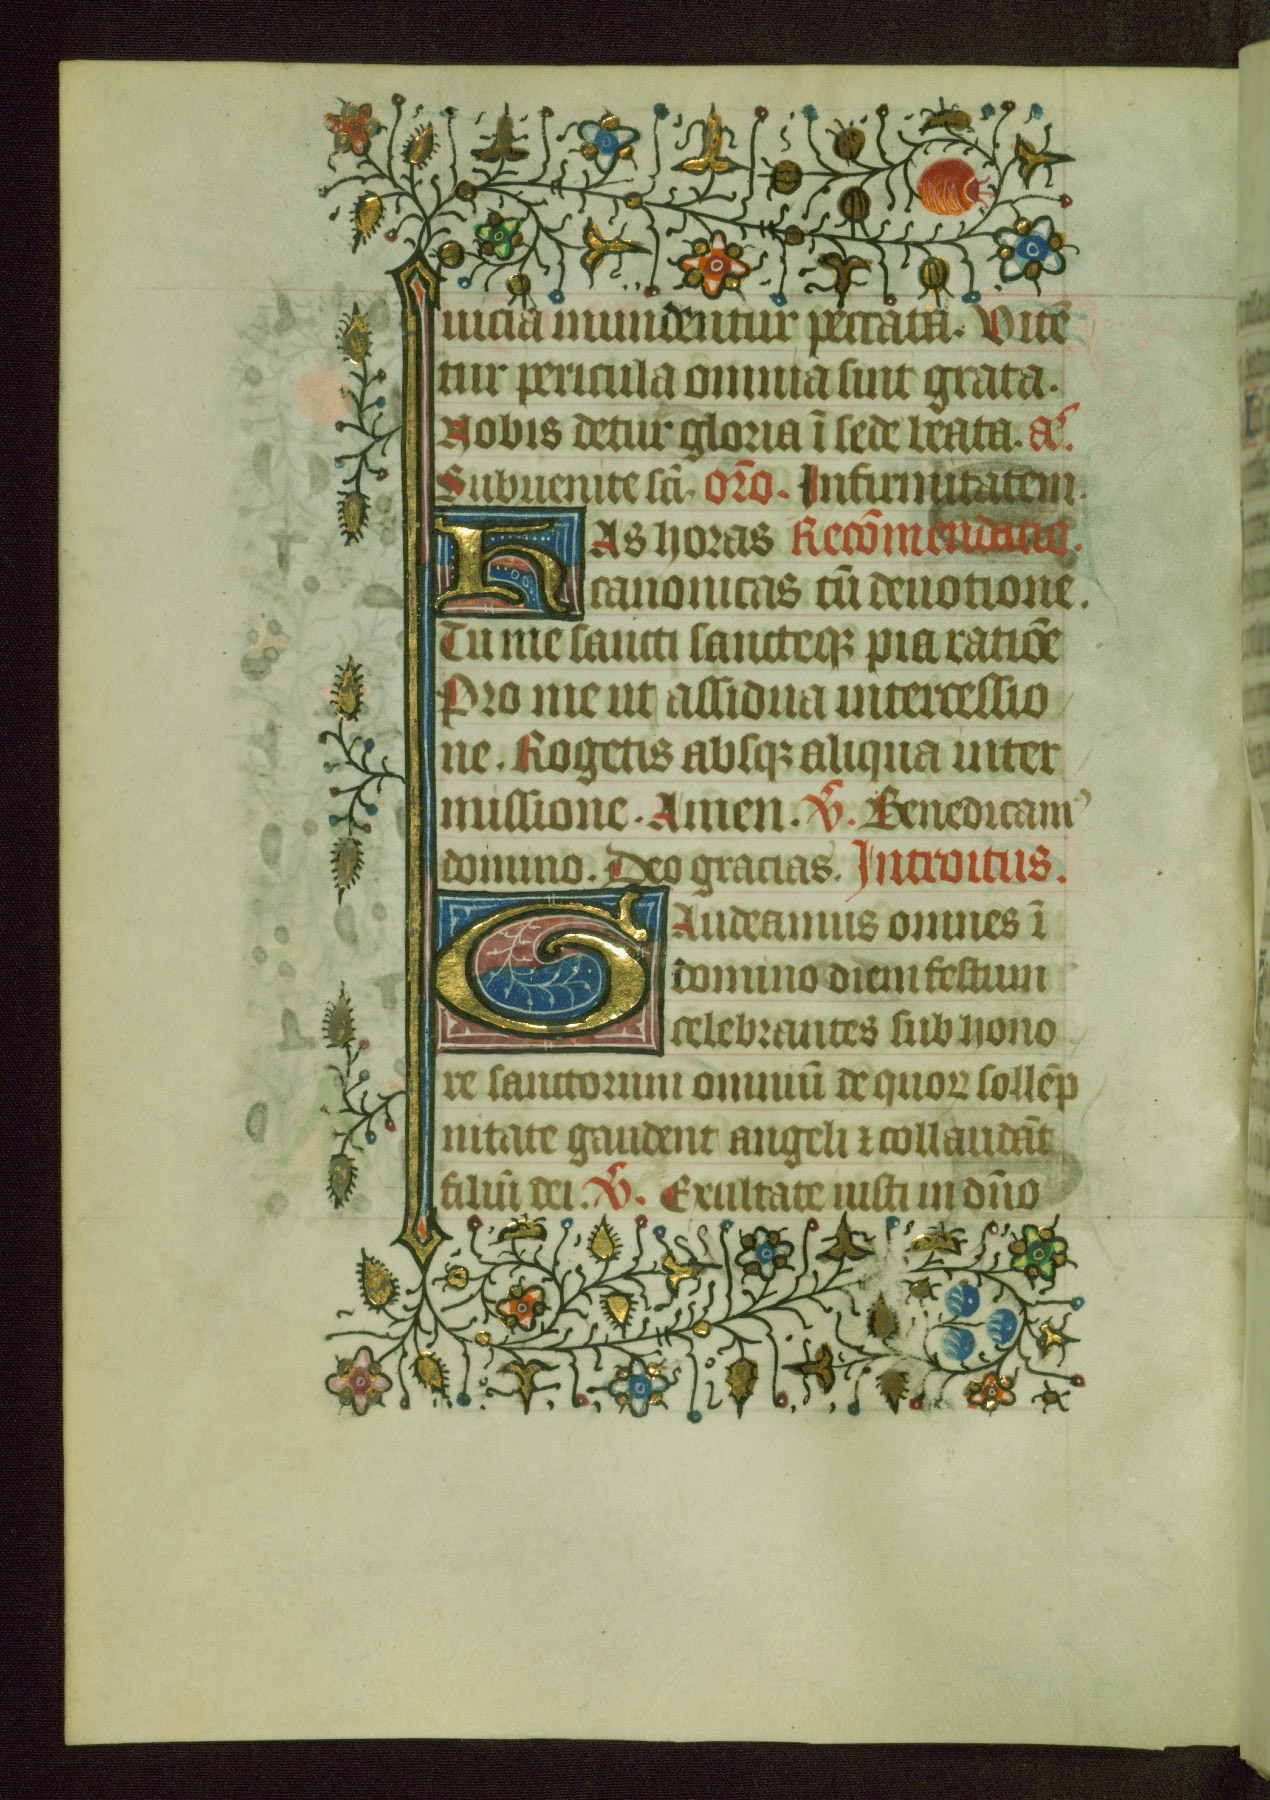 uicia mundentur peccata. Vitē
tur pericula omnia sint grata.
Nobis detur gloria ī sede beata. añ.
Subuenite scī. orō. Infirmitatem.
Has horas Recōmendatio.
canonicas cū deuotione.
Tu me sancti sancteqꝫ pia ratiōe
Pro me ut assidua intercessio
ne. Rogetis absqꝫ aliqua inter
missione. Amen. ℣. Benedicamꝰ
domino. Deo gracias. Introitus.
Gaudeamus omnes ī
domino diem festum
celebrantes sub hono
re sanctorum omniū de quoꝝ sollēp
nitate gaudent angeli ⁊ collaudāt
filiū dei. ℣. Exultate iusti in dño